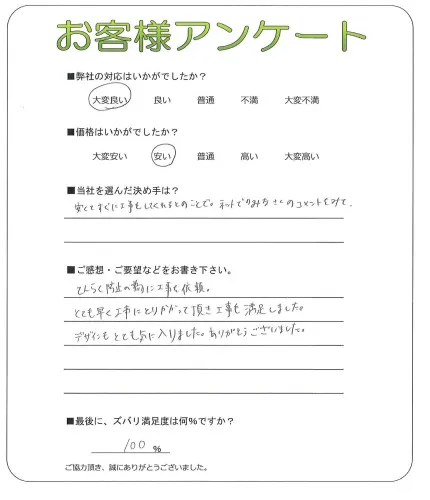 お客様アンケート
■弊社の対応はいかがでしたか?
大変良い 良い 普通 不満 大変不満
■価格はいかがでしたか?
大変安い 安い 普通 高い 大変高い
■当社を選んだ決め手は?
安くてすぐに工事をしてくれるとのことで。ネットでのみなさんのコメントをみて.
■ご感想・ご要望などをお書き下さい。
防止の為に工事を依頼。
とても早く工事にとりかかって頂き工事も満足しました。
デザインもとても気に入りました。ありがとうございました。
■最後に、ズバリ満足度は何%ですか?
100 %
ご協力頂き、誠にありがとうございました。